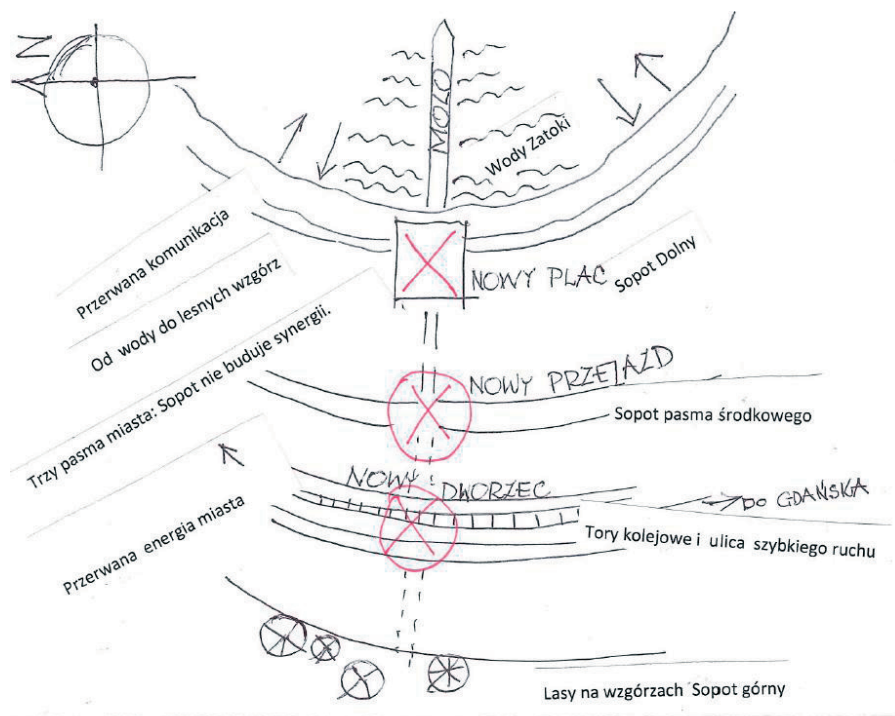 N
MOLO
Wody Zatoki
Przerwana komunikacja
Od wody do lesnych wzgórz
Trzy pasma miasta: Sopot nie buduje synergii.
Przerwana energia miasta
NOWY PLAC
Sopot Dolny
NOWY PRZEJAZD
Sopot pasma środkowego
NOWY DWORZEC
DO GDAŃSKA
Tory kolejowe i ulica szybkiego ruchu
Lasy na wzgórzach Sopot górny